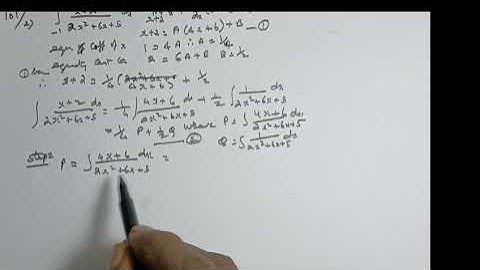 ∫ x+2 / 2x²+6x+5 dx
x+2 = A(4x+6)+B —①
equ. of Coff of x 1 = 4A ∴ A = 1/4
equating Const 2 = 6A+B B = 1/2
∴ x+2 = 1/4 (4x+6) + 1/2
∫ x+2 / 2x²+6x+5 dx = 1/4 ∫ 4x+6 / 2x²+6x+5 dx + 1/2 ∫ 1 dx / 2x²+6x+5
= 1/4 P + 1/2 Q where P = ∫ 4x+6 / 2x²+6x+5
—② Q = ∫ 1 / 2x²+6x+5 dx
Step2 P = ∫ 4x+6 / 2x²+6x+5 dx =